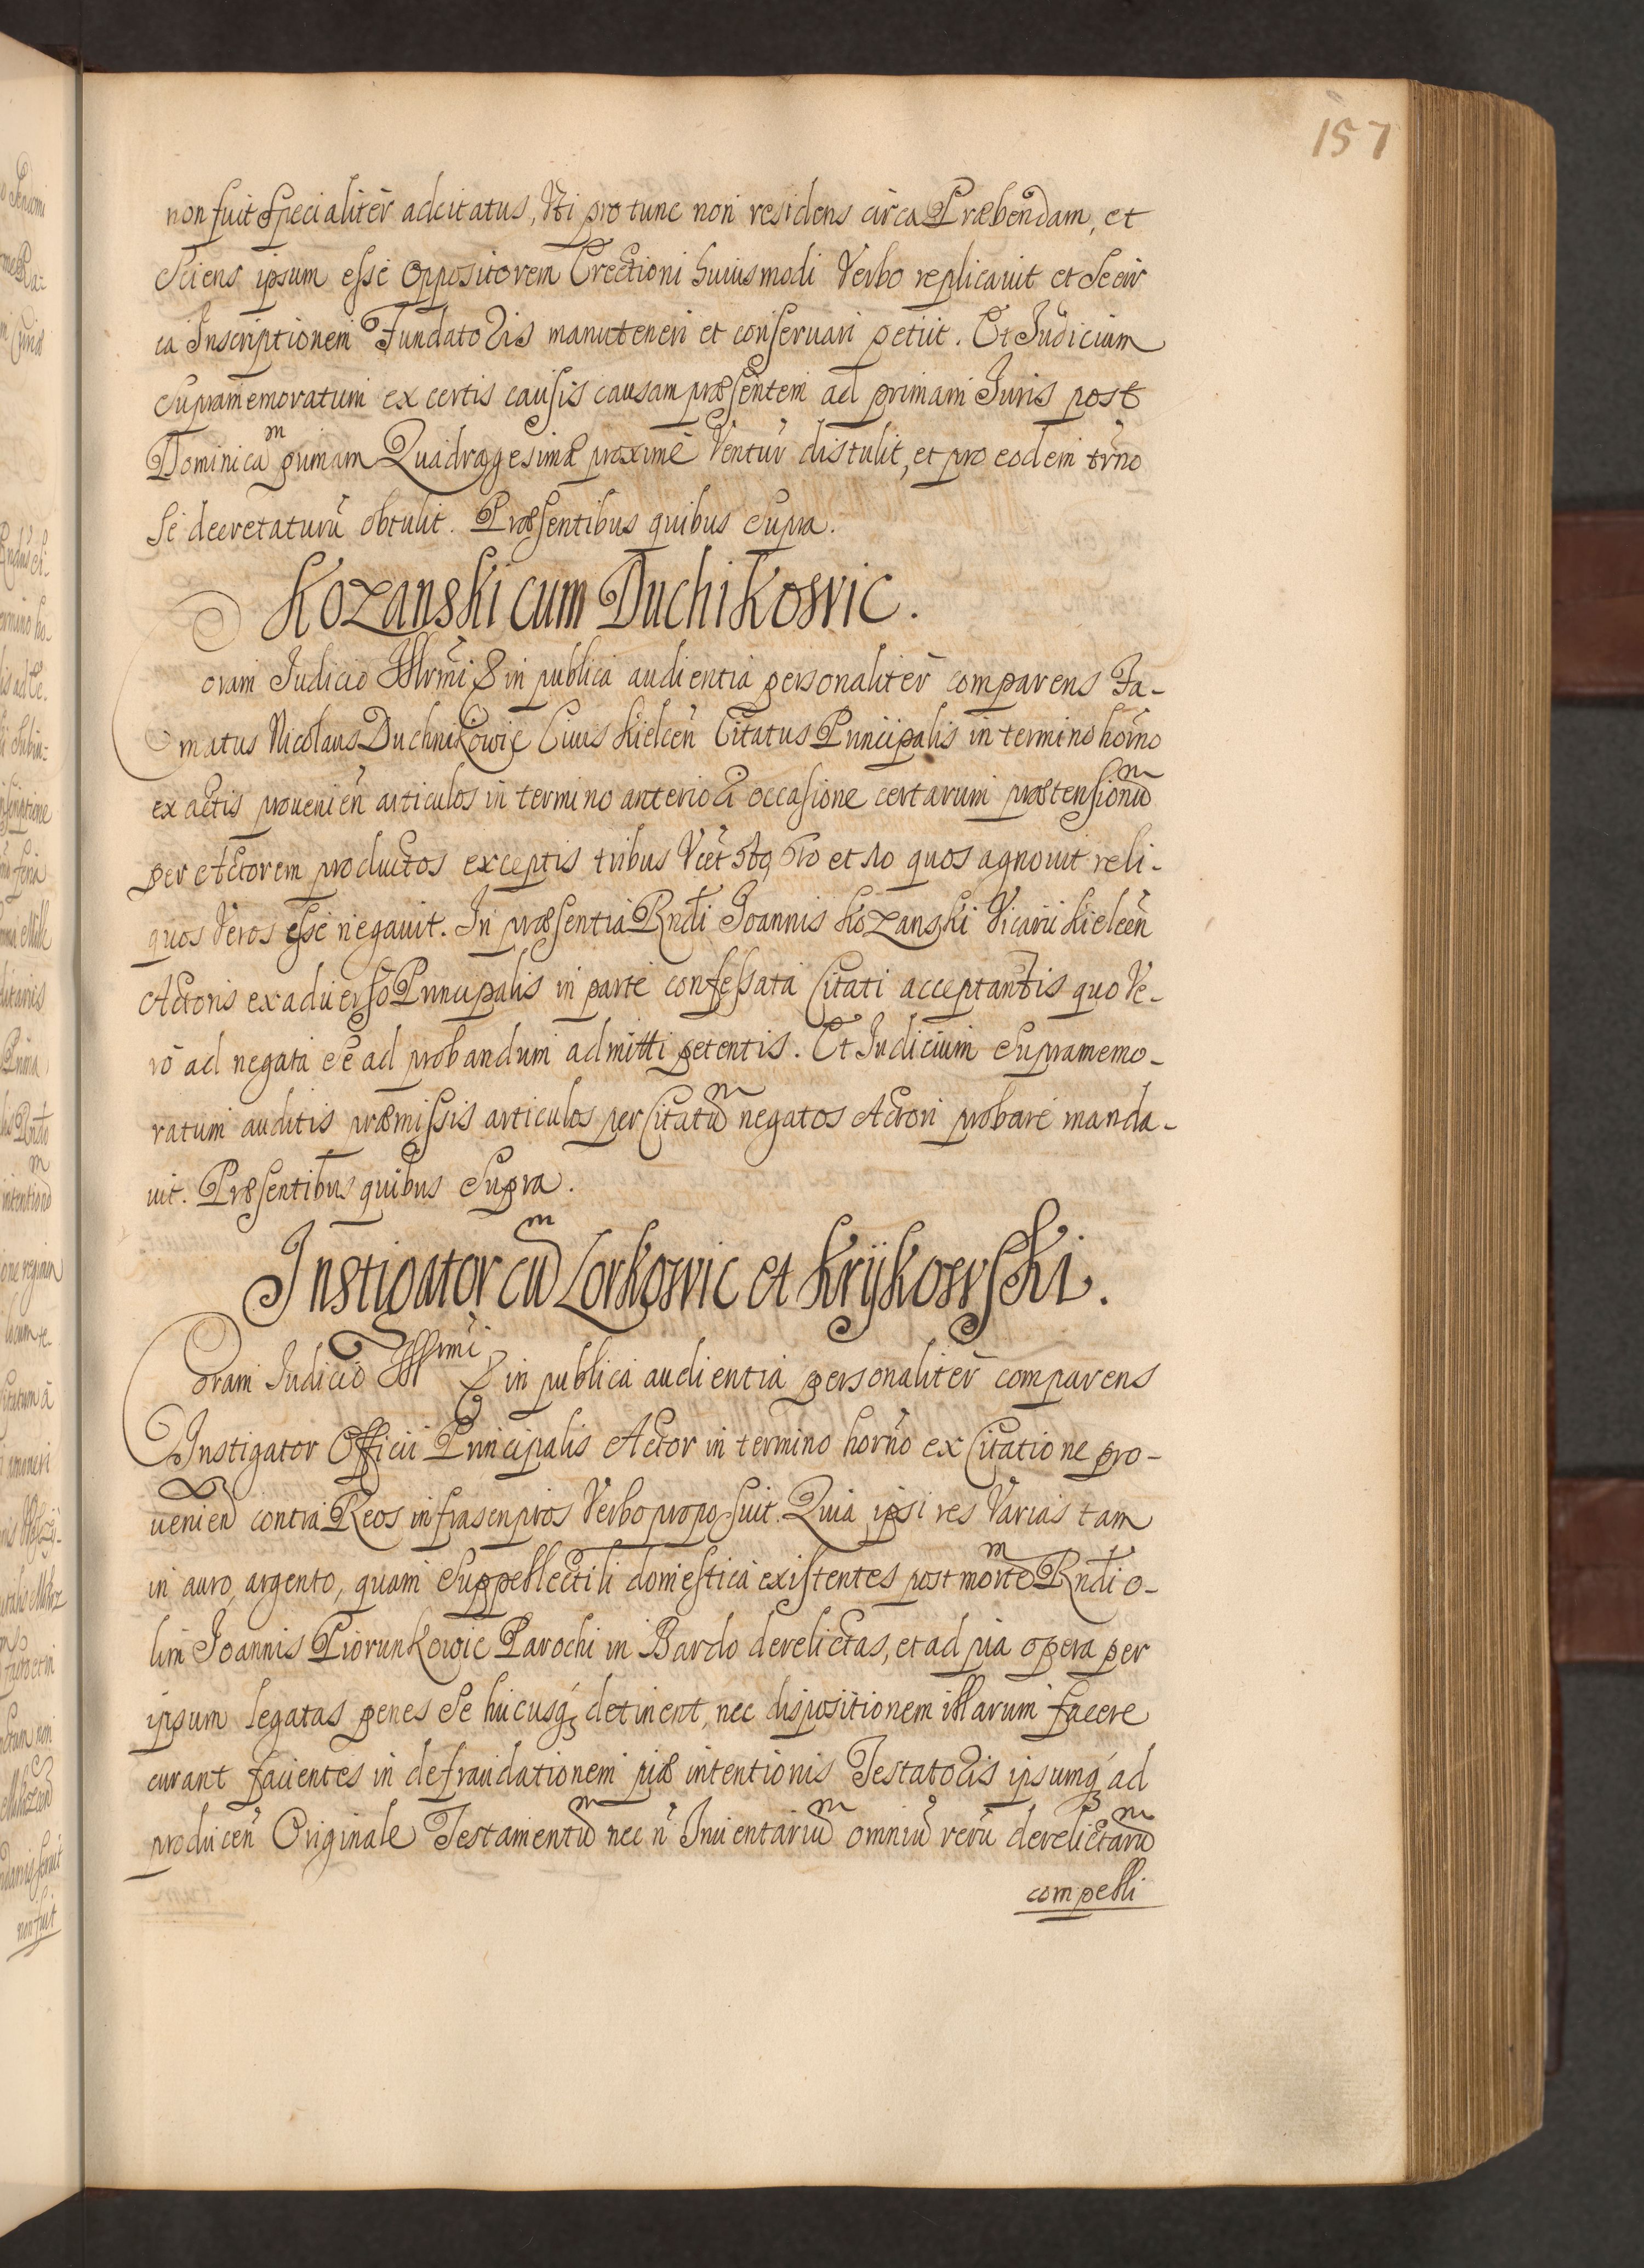 157
non fuit specialiter adcitatus, Uti pro tunc non residens circa Præbendam, et
Sciens ipsum esse oppositorem Erectioni huiusmodi Verbo replicavit et Se cir
ca Inscriptionem Fundatoris manuteneri et conservari petiit. Et Judicium
Supramemoratum ex certis causis causam præsentem ad primam Juris post
Dominicam primam Quadragesimæ proximè Ventur distulit, et pro eodem trno
Se decretaturũ obtulit. Præsentibus quibus Supra.
Kozanski cum Duchikowic.
Coram Judicio Illrmi & in publica audientia personaliter comparens Fa-
matus Nicolaus Duchnikowic Civis Kielceñ Citatus Principalis in termino horno
ex actis provenieñ articulos in termino anteriori occasione certarum prætensionum
per Actorem productos exceptis tribus Vcet et quos agnovit reli-
quos Veros esse negavit. In præsentia Rndi Joannis Kozanski Vicarii Kielceñ
Actoris ex adverso Principalis in parte confessata Citati acceptantis quo Ve-
rò ad negata se ad probandum admitti petentis. Et Judicium Supramemo-
ratum auditis præmissis articulos per Citatum negatos Actori probare manda-
vit. Præsentibus quibus Supra.
Instigator cum Lorkowic et Krijkowski.
Coram Judicio Illrmi & in publica audientia personaliter comparens
Instigator Officii Principalis Actor in termino horno ex Citatione pro-
venien contra Reos infrascriptos Verbo proposuit. Quia ipsi res Varias tam
in auro, argento, quam Suppellectili domestica existentes post mortem Rndi o-
lim Joannis Piorunkowic Parochi in Bardo derelictas, et ad pia opera per
ipsum legatas penes Se hucusq detinent, nec dispositionem illarum facere
curant facientes in defraudationem piæ intentionis Testatoris ipsumq ad
producen Originale Testamentum nec ñ Inventarium omniũ rerũ derelictarum
compelli